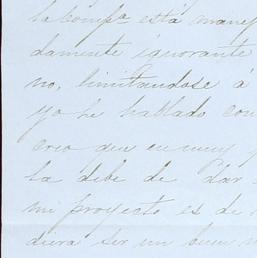 la compª está manej
damente ignorante
no, limitandose á
yo he hablado con
creo que es muy
la debe de dar
mi proyecto es de
diera ser un buen